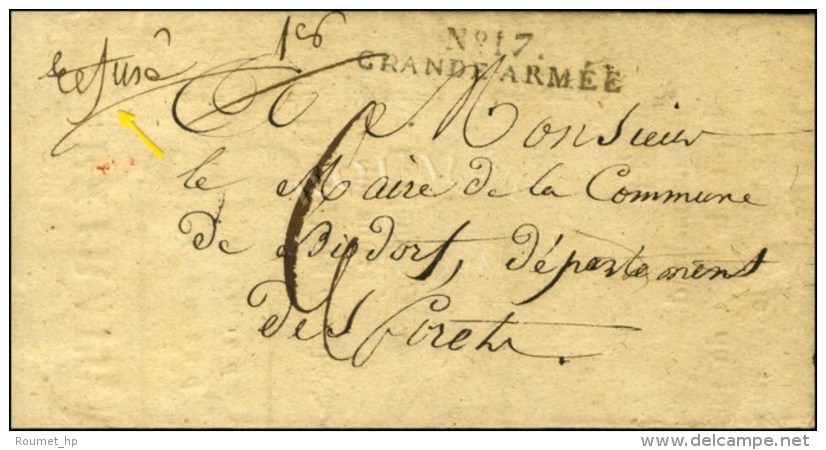 Refusé
N.º 17.
GRANDE ARMÉE
A Monsieur
le Maire de la Commune
de Bisdorf, département
des Forets.
Roumet_hp
www.delcampe.net